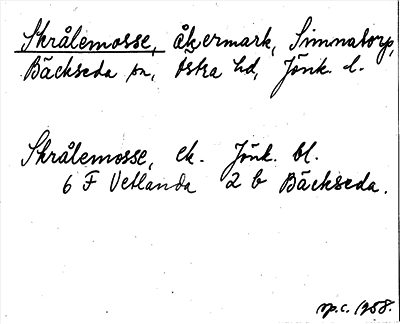 Skrålemosse, åkermark, Simnatorp,
Bäckseda sn, Östra hd, Jönk. l.
Skrålemosse, ek. Jönk. bl.
6 F Vetlanda 2 b Bäckseda.
op.c. 1958.